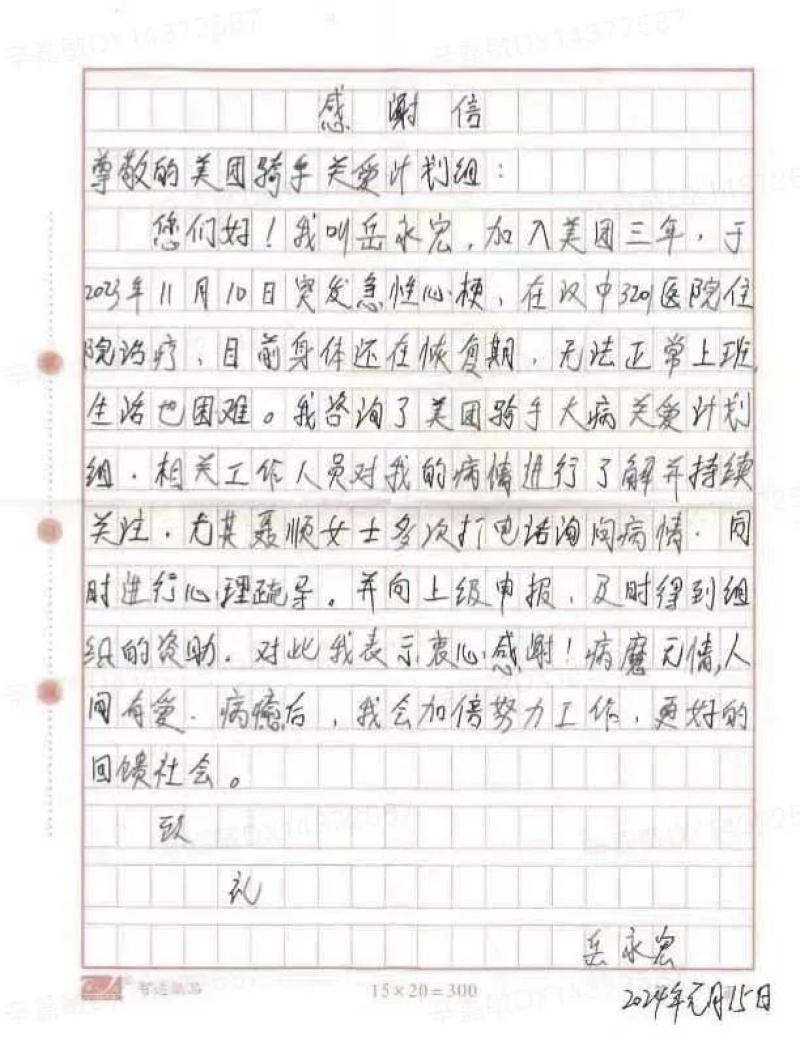 感谢信
尊敬的美团骑手关爱计划组：
您们好！我叫岳永宏，加入美团三年，于
2023年11月10日突发急性心梗，在汉中3201医院住
院治疗、目前身体还在恢复期，无法正常上班，
生活也困难。我咨询了美团骑手大病关爱计划
组．相关工作人员对我的病情进行了解并持续
关注．尤其聂顺女士多次打电话询问病情．同
时进行心理疏导。并向上级申报，及时得到组
织的资助．对此我表示衷心感谢！病魔无情，人
间有爱．病癒后，我会加倍努力工作，更好的
回馈社会。
致
礼
岳永宏
15×20=300
2024年元月15日